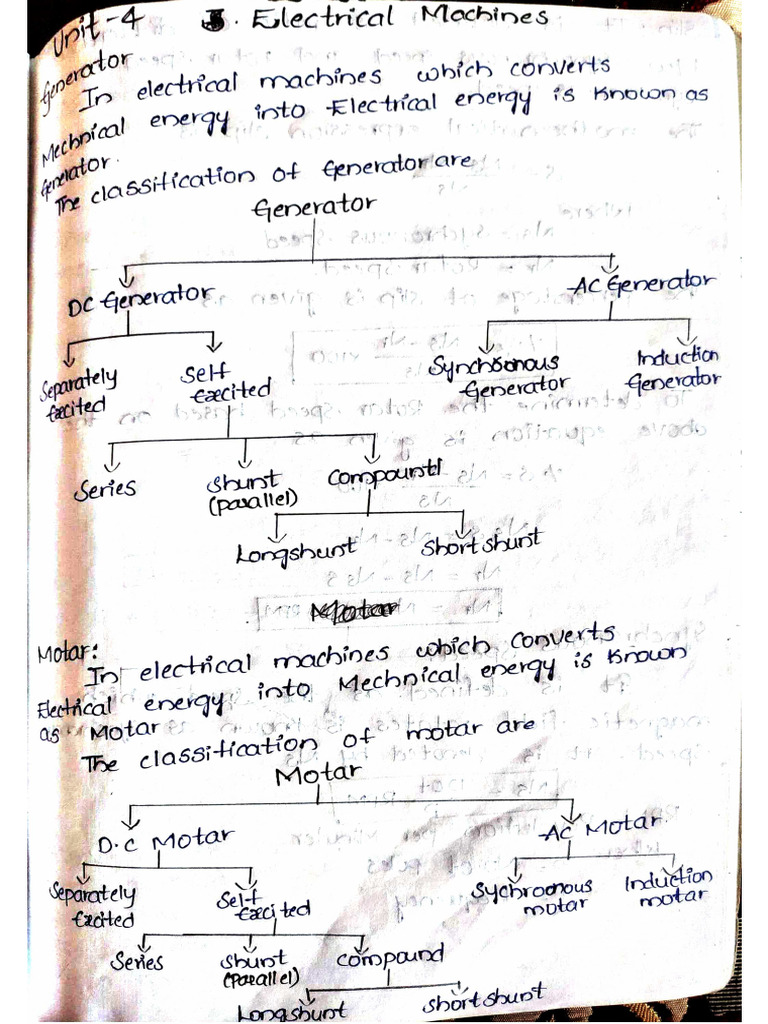 Unit-4 Electrical Machines
Generator
In electrical machines which converts
Mechnical energy into Electrical energy is known as
Generator.
The classification of Generator are
Generator
DC Generator AC Generator
Separately Excited Self Excited Synchronous Generator Induction Generator
Series Shunt (parallel) Compound
Longshunt Shortshunt
Motar:
In electrical machines which converts
Electrical energy into Mechnical energy is known
as Motar
The classification of motar are
Motar
D.C Motar AC Motar
Separately Excited Self Excited Sychroonous motar Induction motar
Series Shunt (parallel) compound
Longshunt Shortshunt